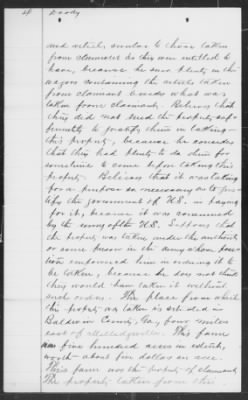 4
Doody
and articles similar to those taken
from claimant as they were entitled to
have, because he saw plenty in the
wagons containing the articles taken
from claimant besides what was
taken from claimant. Believes that
they did not need the property suf-
ficiently to justify them in taking
this property, because he considers
that they had plenty to do them for
sometime to come upon taking this
property. Believes that it was taken
for a purpose so necessary as to jus-
tify the government of U.S. in paying
for it, because it was consumed
by the army of the U.S. Supposes that
the property was taken under the authority
of some person in the army whose posi-
tion empowered him in ordering it to
be taken, because he does not think
they would have taken it without
such orders. The place from which
this property was taken is situated in
Baldwin County, Ga, four miles
east of Milledgeville. This farm
five hundred acres in extent,
worth about five dollars an acre.
This farm was the property of claimant
The property taken from this